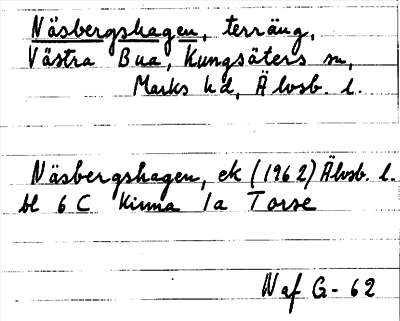 Näsbergshagen, terräng,
Västra Bua, Kungsäters sn,
Marks hd, Älvsb. l.
Näsbergshagen, ek (1962) Älvsb. l.
bl 6 C Kinna 1a Torse
Naf G-62